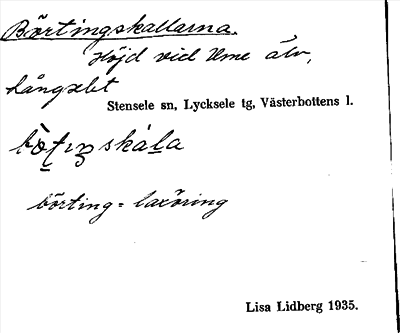 Börtingskallarna.
Höjd vid Ume älv,
Långselet
Stensele sn, Lycksele tg, Västerbottens l.
börting = laxöring
Lisa Lidberg 1935.